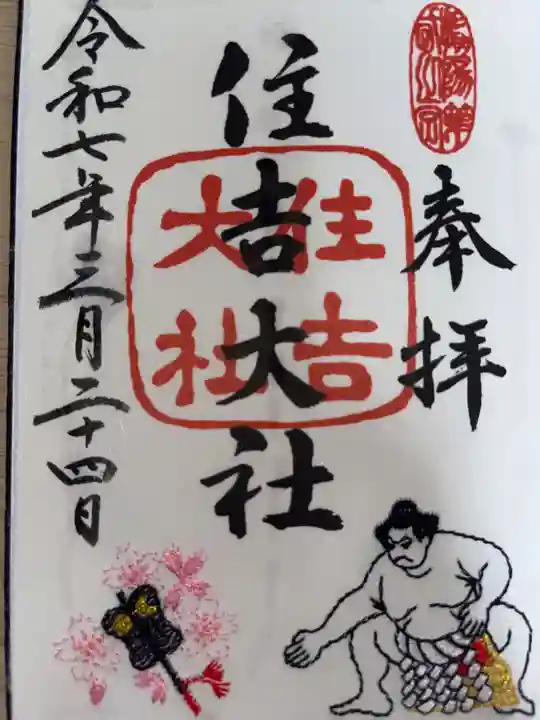 奉拝
住吉大社
住吉大社
令和七年三月二十四日